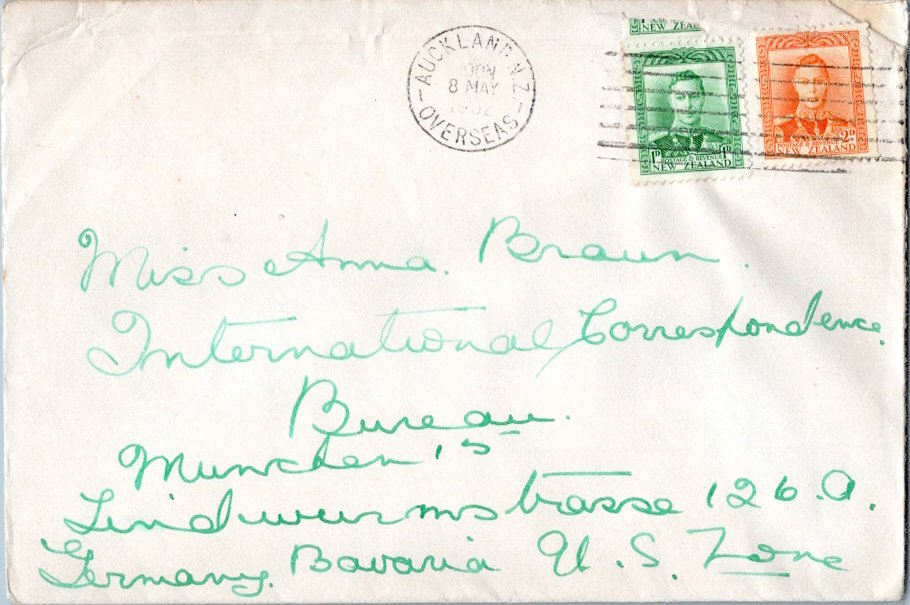 NEW ZEAL
AUCKLAND N.Z.
8 MAY
OVERSEAS
1D 1D
POSTAGE & REVENUE
NEW ZEALAND
2D
POSTAGE & REVENUE
NEW ZEALAND
Miss Anna. Braun.
International Correspondence.
Bureau.
Munchen 15
Lindwurmstrasse 126.A.
Germany. Bavaria U.S. Zone